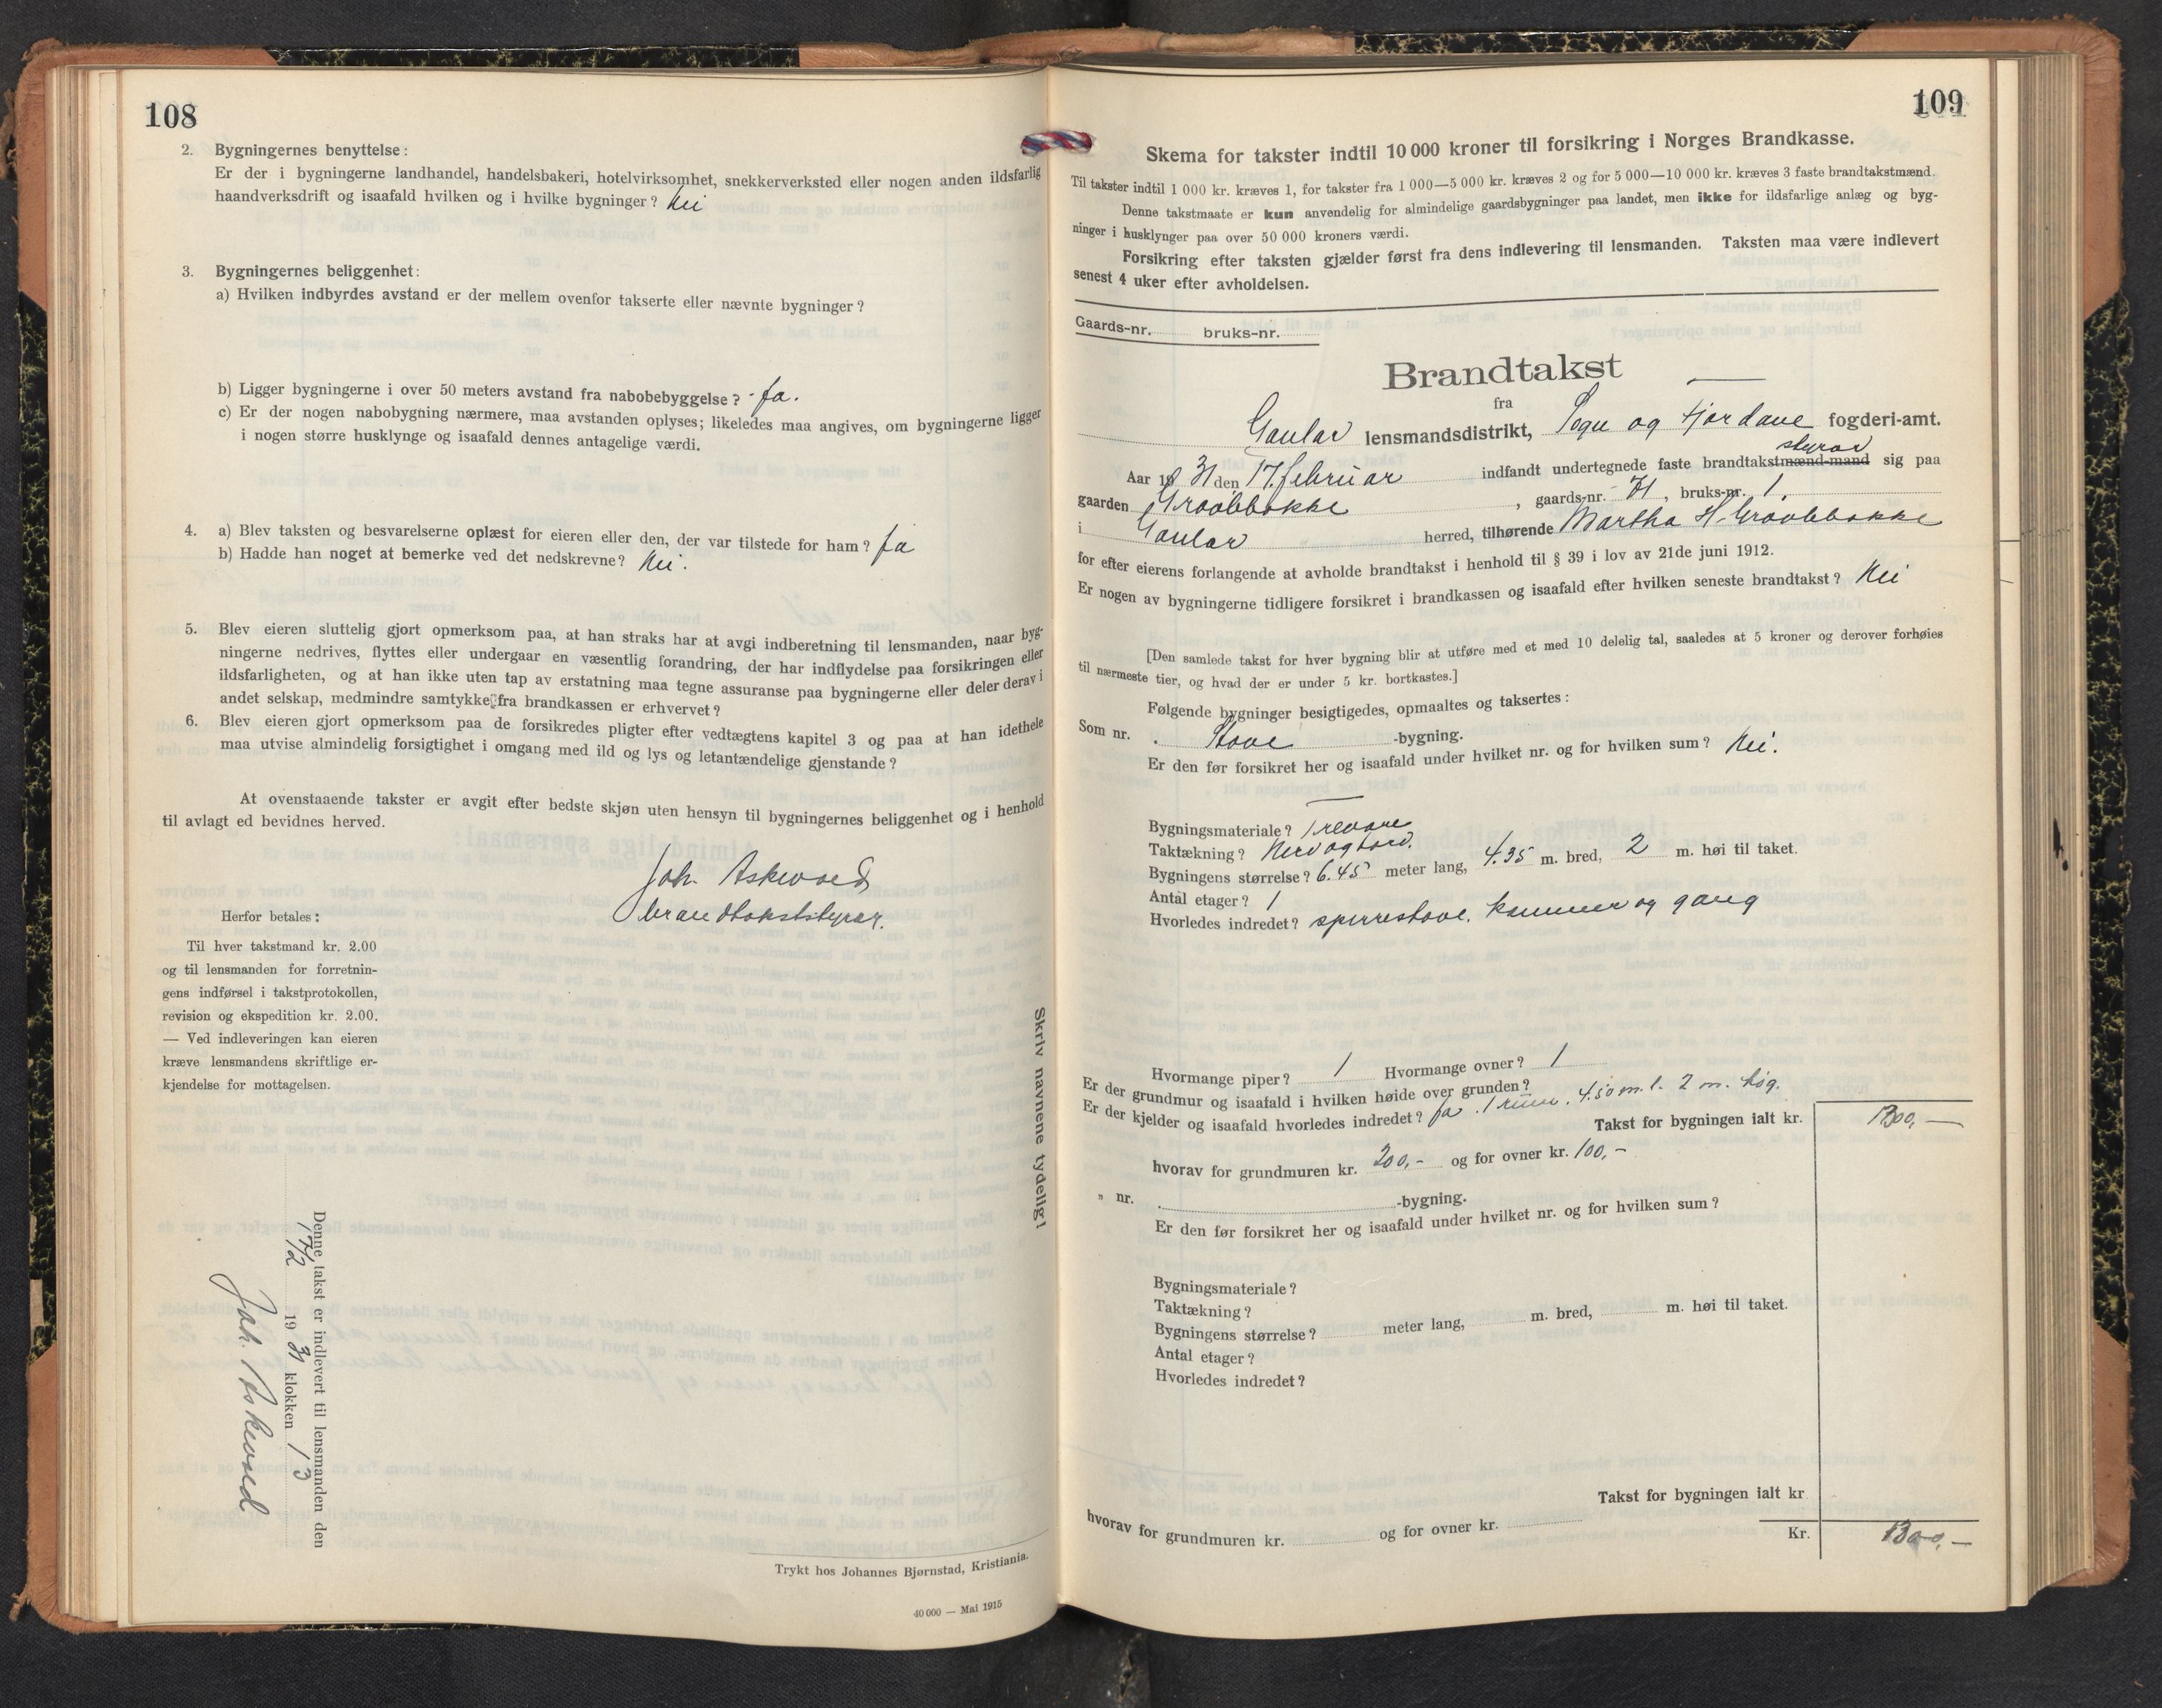 108
2. Bygningernes benyttelse:
Er der i bygningerne landhandel, handelsbakeri, hotelvirksomhet, snekkerverksted eller nogen anden ildsfarlig
haandverksdrift og isaafald hvilken og i hvilke bygninger? Nei
3. Bygningernes beliggenhet:
a) Hvilken indbyrdes avstand er der mellem ovenfor takserte eller nævnte bygninger?
b) Ligger bygningerne i over 50 meters avstand fra nabobebyggelse? Ja.
c) Er der nogen nabobygning nærmere, maa avstanden oplyses; likeledes maa angives, om bygningerne ligger
i nogen større husklynge og isaafald dennes antagelige værdi.
4. a) Blev taksten og besvarelserne oplæst for eieren eller den, der var tilstede for ham? Ja
b) Hadde han noget at bemerke ved det nedskrevne? Nei.
5. Blev eieren sluttelig gjort opmerksom paa, at han straks har at avgi indberetning til lensmanden, naar byg-
ningerne nedrives, flyttes eller undergaar en væsentlig forandring, der har indflydelse paa forsikringen eller
ildsfarligheten, og at han ikke uten tap av erstatning maa tegne assuranse paa bygningerne eller deler derav i
andet selskap, medmindre samtykke fra brandkassen er erhvervet?
6. Blev eieren gjort opmerksom paa de forsikredes pligter efter vedtægtens kapitel 3 og paa at han idethele
maa utvise almindelig forsigtighet i omgang med ild og lys og letantændelige gjenstande?
At ovenstaaende takster er avgit efter bedste skjøn uten hensyn til bygningernes beliggenhet og i henhold
til avlagt ed bevidnes herved.
Joh. Askevold
brandtakststyrar.
Herfor betales:
Til hver takstmand kr. 2.00
og til lensmanden for forretnin-
gens indførsel i takstprotokollen,
revision og ekspedition kr. 2.00.
— Ved indleveringen kan eieren
kræve lensmandens skriftlige er-
kjendelse for mottagelsen.
Skriv navnene tydelig!
Denne takst er indlevert til lensmanden den
17/2 1931 klokken 13
Joh. Askevold
Trykt hos Johannes Bjørnstad, Kristiania.
40 000 — Mai 1915
109
Skema for takster indtil 10 000 kroner til forsikring i Norges Brandkasse.
Til takster indtil 1 000 kr. kræves 1, for takster fra 1 000—5 000 kr. kræves 2 og for 5 000—10 000 kr. kræves 3 faste brandtakstmænd.
Denne takstmaate er kun anvendelig for almindelige gaardsbygninger paa landet, men ikke for ildsfarlige anlæg og byg-
ninger i husklynger paa over 50 000 kroners værdi.
Forsikring efter taksten gjælder først fra dens indlevering til lensmanden. Taksten maa være indlevert
senest 4 uker efter avholdelsen.
Gaards-nr. bruks-nr.
Brandtakst
fra
Gaular lensmandsdistrikt, Sogn og Fjordane fogderi-amt.
styrar
Aar 1931 den 17. februar indfandt undertegnede faste brandtakstmænd-mand sig paa
gaarden , gaards-nr. 71, bruks-nr. 1.
i Gaular herred, tilhørende Martha H.
for efter eierens forlangende at avholde brandtakst i henhold til § 39 i lov av 21de juni 1912.
Er nogen av bygningerne tidligere forsikret i brandkassen og isaafald efter hvilken seneste brandtakst? Nei
[Den samlede takst for hver bygning blir at utføre med et med 10 delelig tal, saaledes at 5 kroner og derover forhøies
til nærmeste tier, og hvad der er under 5 kr. bortkastes.]
Følgende bygninger besigtigedes, opmaaltes og taksertes:
Som nr. . Stove -bygning.
Er den før forsikret her og isaafald under hvilket nr. og for hvilken sum? Nei.
Bygningsmateriale? Trevare
Taktækning? Never og tord.
Bygningens størrelse? 6.45 meter lang, 4.35 m. bred, 2 m. høi til taket.
Antal etager? 1
Hvorledes indredet? sperrestove, kammer og gang
Hvormange piper? 1 Hvormange ovner? 1
Er der grundmur og isaafald i hvilken høide over grunden?
Er der kjelder og isaafald hvorledes indredet? Ja. 1 rum. 4.50 m. l. 2 m. høg.
Takst for bygningen ialt kr. 1300,—
hvorav for grundmuren kr. 200,- og for ovner kr. 100,-
„ nr. . -bygning.
Er den før forsikret her og isaafald under hvilket nr. og for hvilken sum?
Bygningsmateriale?
Taktækning?
Bygningens størrelse? meter lang, m. bred, m. høi til taket.
Antal etager?
Hvorledes indredet?
Takst for bygningen ialt kr
hvorav for grundmuren kr. og for ovner kr.
Kr. 1300,—